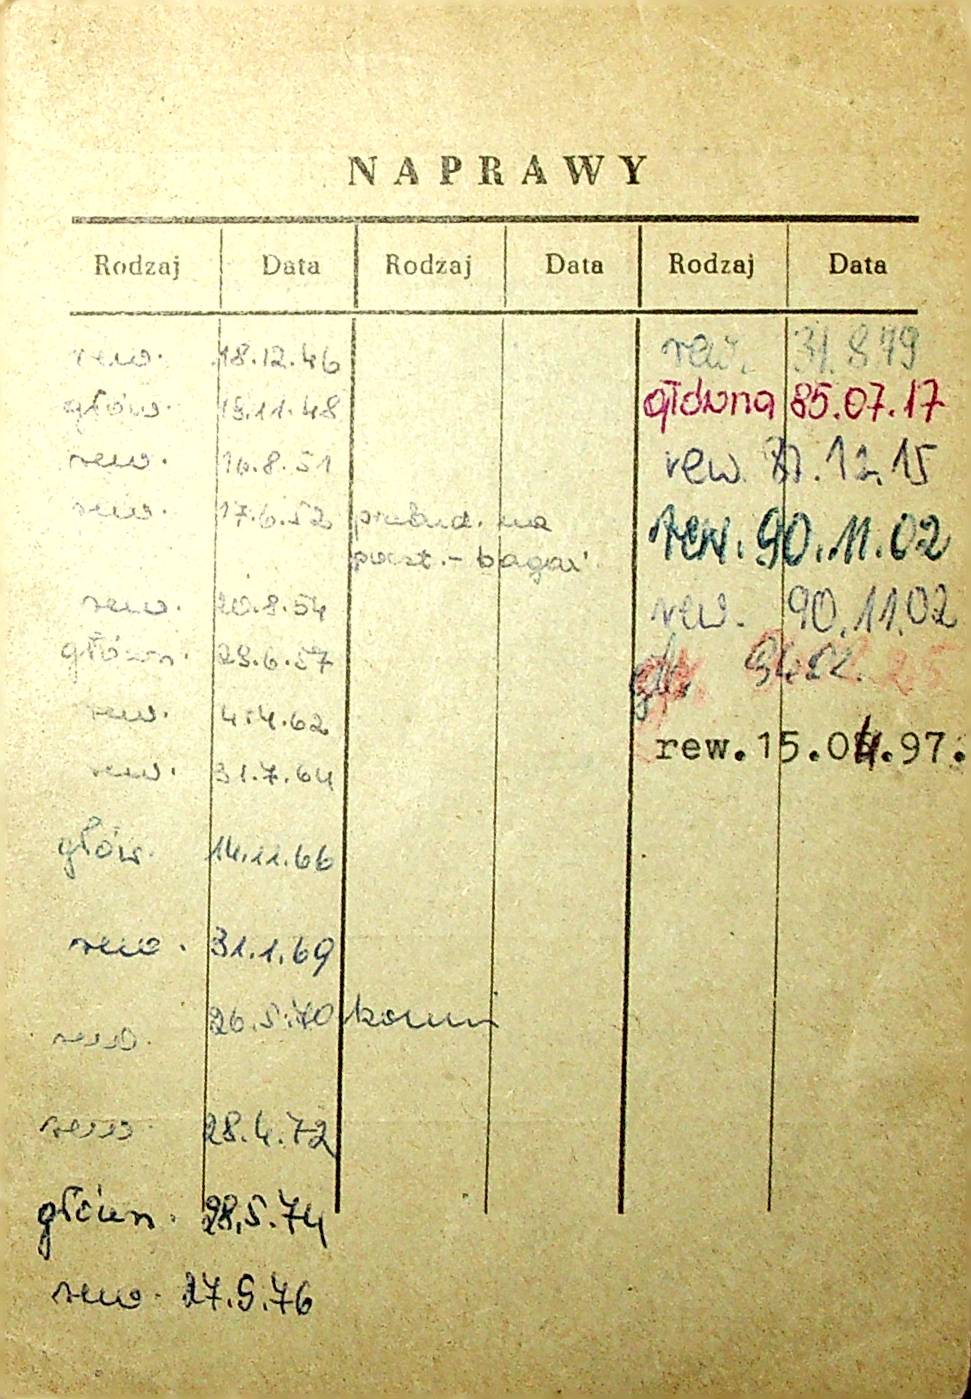 NAPRAWY
Rodzaj Data Rodzaj Data Rodzaj Data
rew. 18.12.46
głów. 15.11.48
rew. 16.8.51
rew. 17.6.52 przebud. na
poczt.-bagaż.
rew. 20.8.54
główn. 28.6.57
rew. 4.4.62
rew. 31.7.64
głów. 14.11.66
rew. 31.1.69
rew. 26.5.70
rew. 28.4.72
główn. 28.5.74
rew. 27.9.76
rew. 31.8.79
główna 85.07.17
rew. 12.15
rew. 90.11.02
rew. 90.11.02
rew.15.04.97.